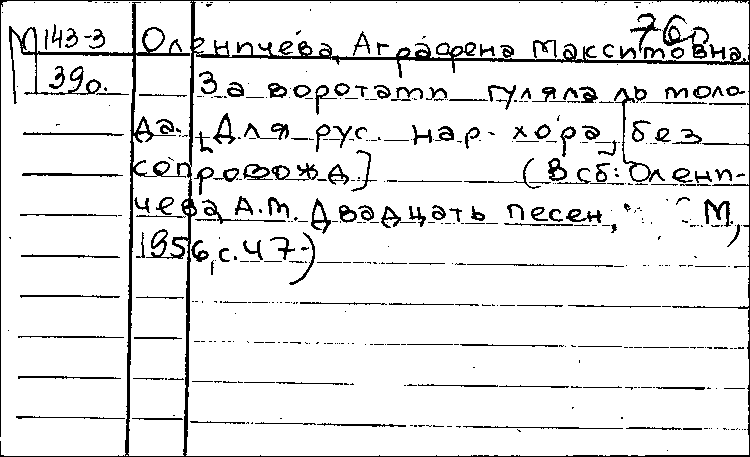 76о
М 143-3 Оленичева, Аграфена Максимовна.
39о. За воротами гуляла ль моло-
да. [Для рус. нар. хора, без
сопровожд.] (В сб: Олени-
чева, А.М. Двадцать песен, М,
1956, с. 47.)